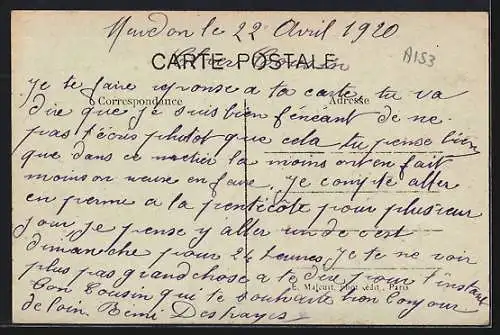 Meudon le 22 Avril 1920
Cher Cousin
CARTE POSTALE
A153
Je te faire reponse a ta carte tu va
Correspondance
Adresse
dire que je suis bien féneant de ne
pas t'ecris plutot que cela tu pense bien
que dans ce metier la moins ont en fait
moins on veux en faire. Je compte aller
en perme a la pentecôte pour plusieur
jour je pense y aller un de c'est
dimanche pour 24 heures Je te ne voir
plus pas grand chose a te dire pour l'instant
E. Malcuit, Phot. édit., Paris
Ton Cousin qui te souhaite bon bonjour
de loin. Remi Deshayes